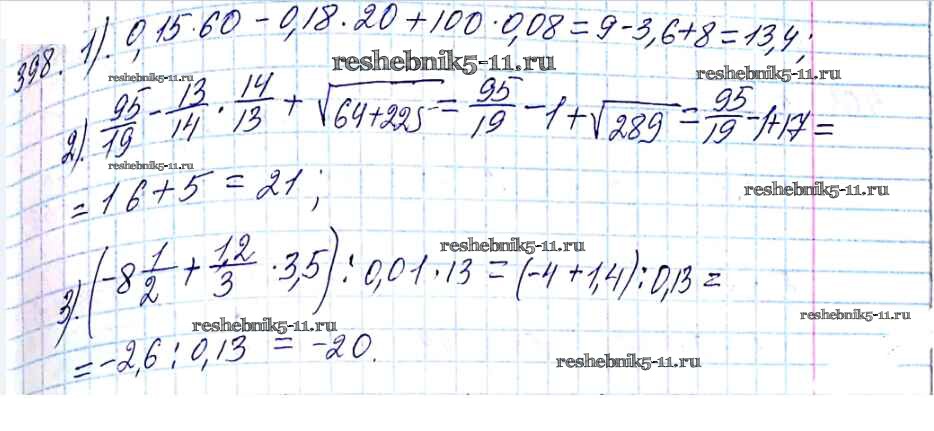 398. 1). 0,15·60 - 0,18·20 + 100·0,08 = 9 - 3,6 + 8 = 13,4;
reshebnik5-11.ru reshebnik5-11.ru reshebnik5-11.ru
2). 95/19 - 13/14 · 14/13 + √(64+225) = 95/19 - 1 + √289 = 95/19 - 1 + 17 =
reshebnik5-11.ru
= 16 + 5 = 21;
reshebnik5-11.ru
reshebnik5-11.ru
3). (-8 1/2 + 1,2/3 · 3,5) : 0,01 · 13 = (-4 + 1,4) : 0,13 =
reshebnik5-11.ru reshebnik5-11.ru
= -2,6 : 0,13 = -20.
reshebnik5-11.ru